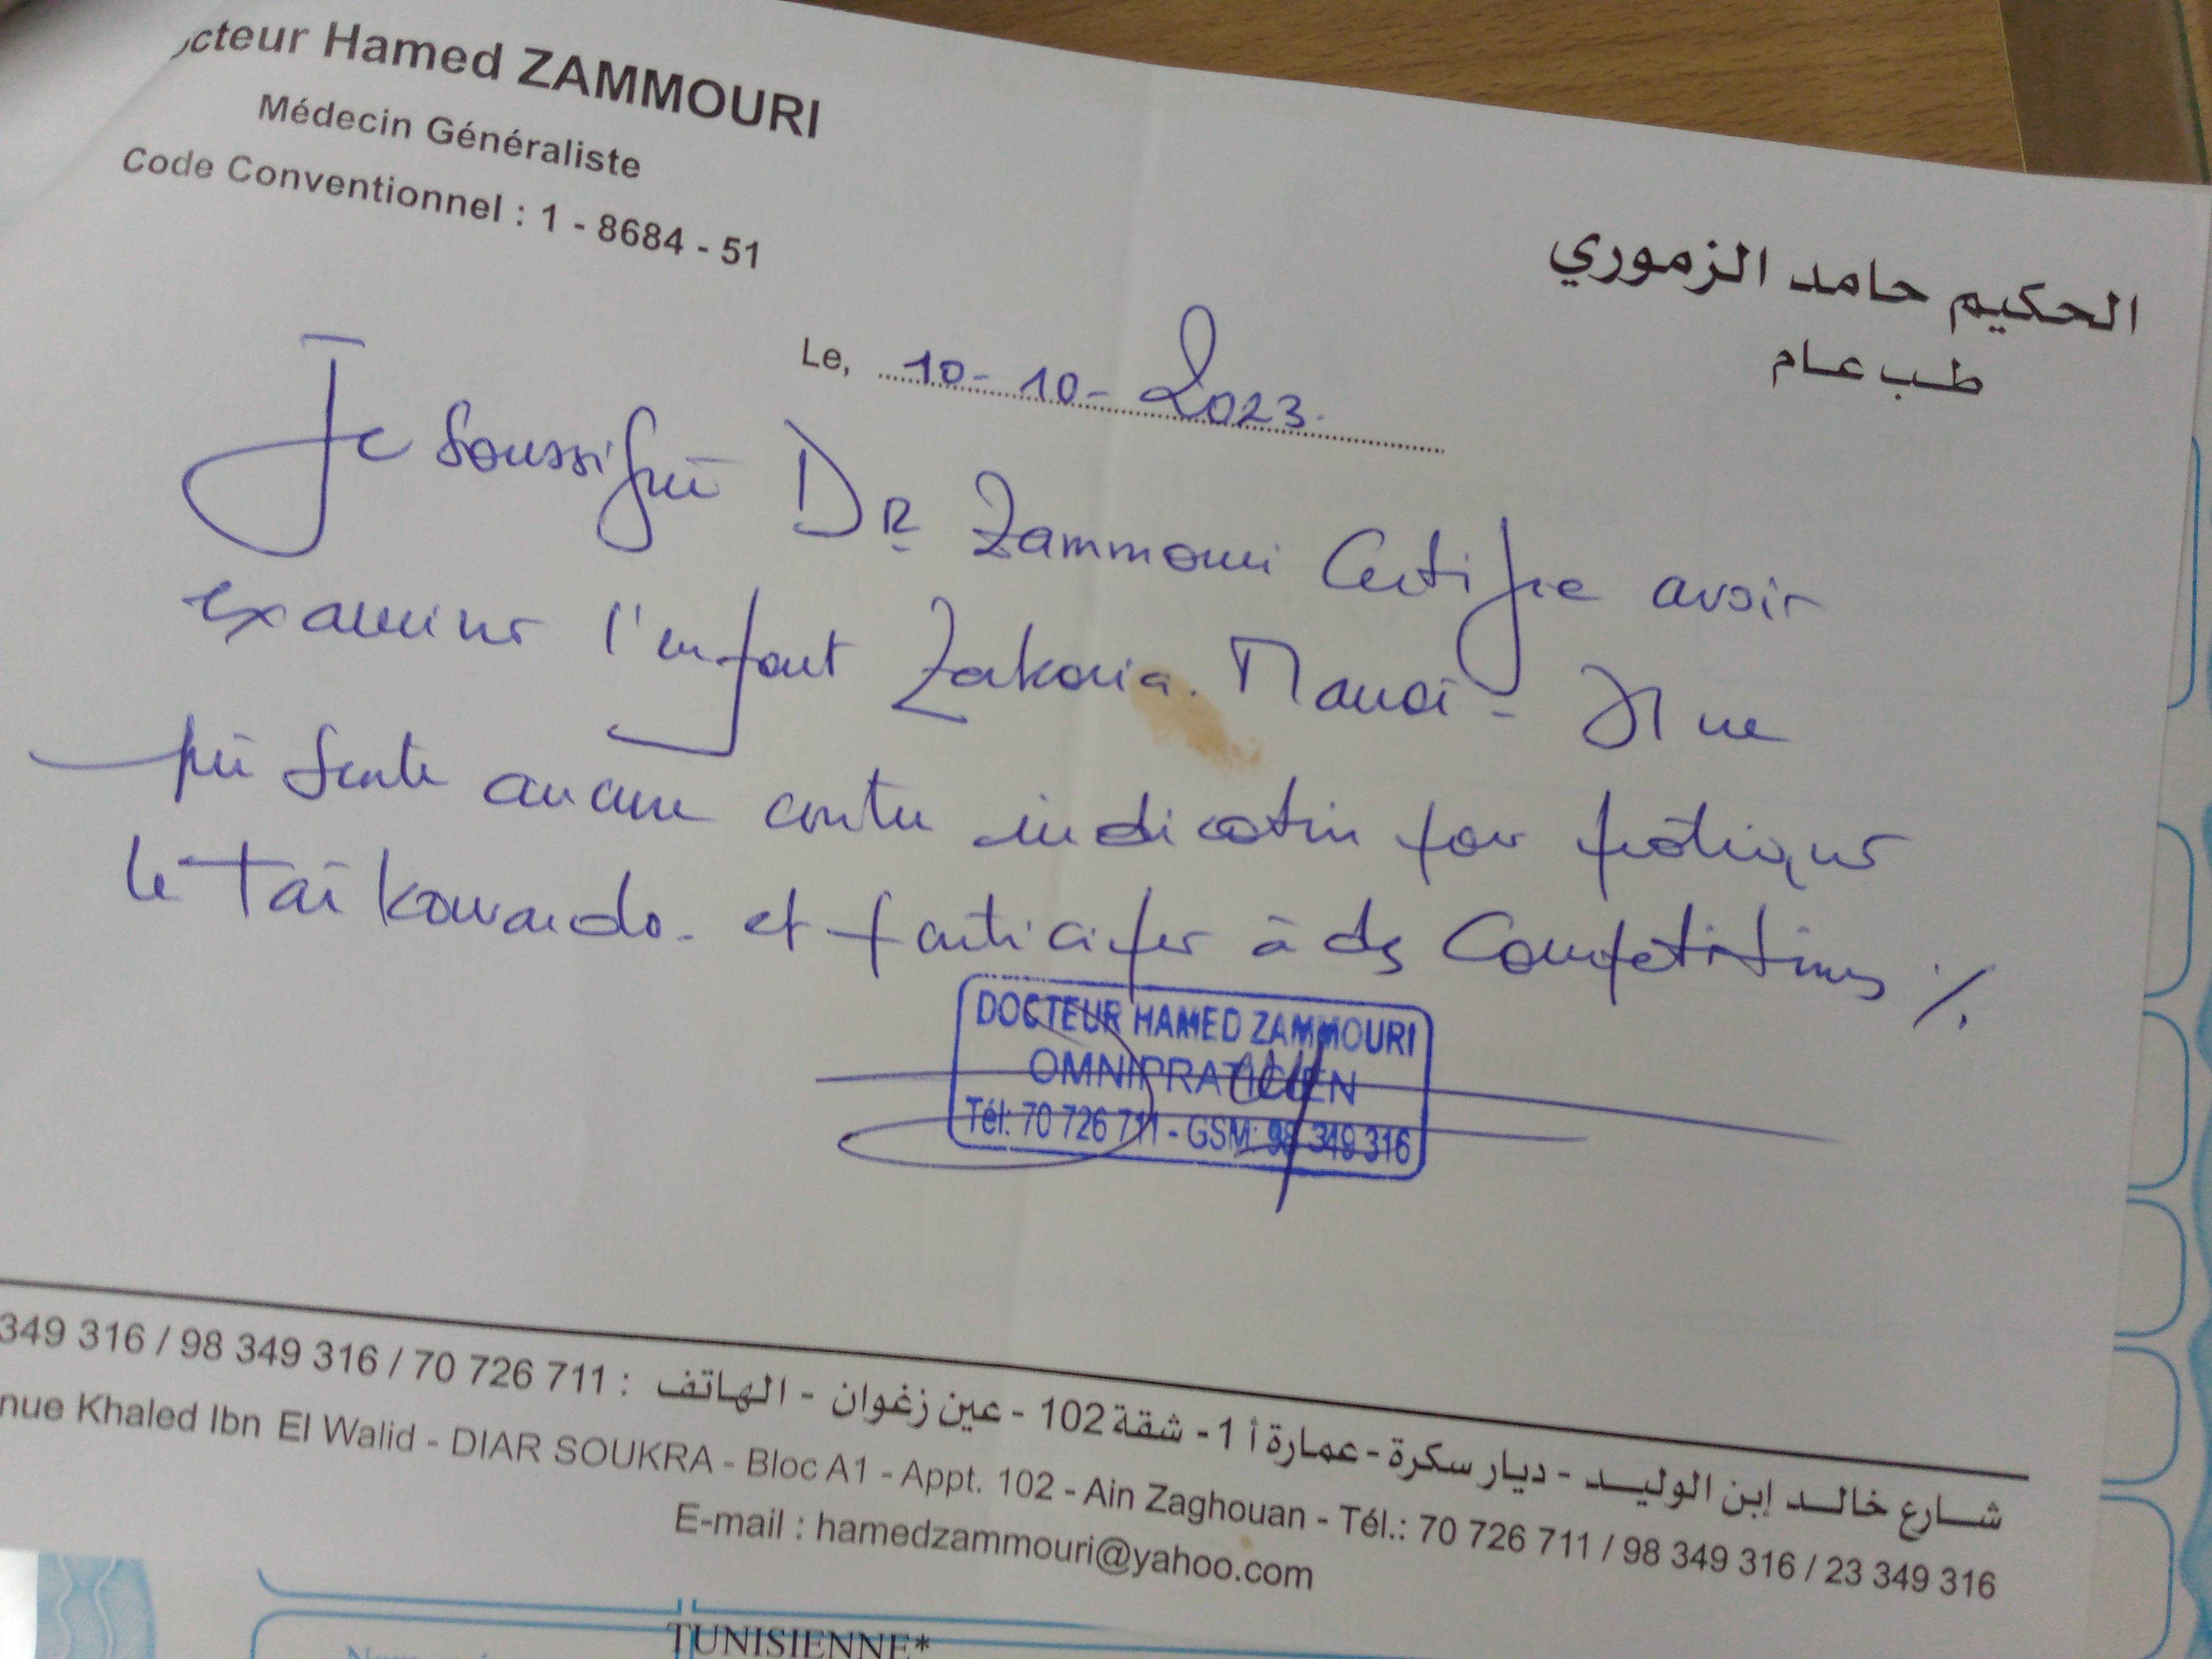 cteur Hamed ZAMMOURI
Médecin Généraliste
Code Conventionnel : 1 - 8684 - 51
الحكيم حامد الزموري
طب عام
Le, 10-10-2023.
Je soussigné DR Zammouri Certifie avoir
examiner l'enfant Zakaria. Manai - Il ne
présente aucune contre indication pour pratiquer
le Taïkowando. et participer à des Compétitions ./.
DOCTEUR HAMED ZAMMOURI
OMNIPRATICIEN
Tél: 70 726 711 - GSM: 98 349 316
شارع خالد إبن الوليد - ديار سكرة - عمارة أ 1 - شقة 102 - عين زغوان - الهاتف : 70 726 711 / 98 349 316 / 349 316
nue Khaled Ibn El Walid - DIAR SOUKRA - Bloc A1 - Appt. 102 - Ain Zaghouan - Tél.: 70 726 711 / 98 349 316 / 23 349 316
E-mail : hamedzammouri@yahoo.com
TUNISIENNE*